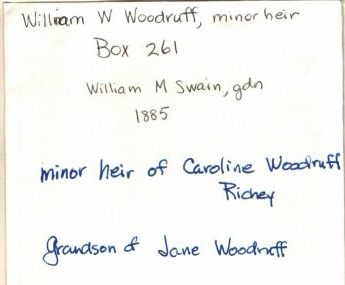 William W Woodruff, minor heir
Box 261
William M Swain, gdn
1885
minor heir of Caroline Woodruff
Richey
grandson of Jane Woodruff